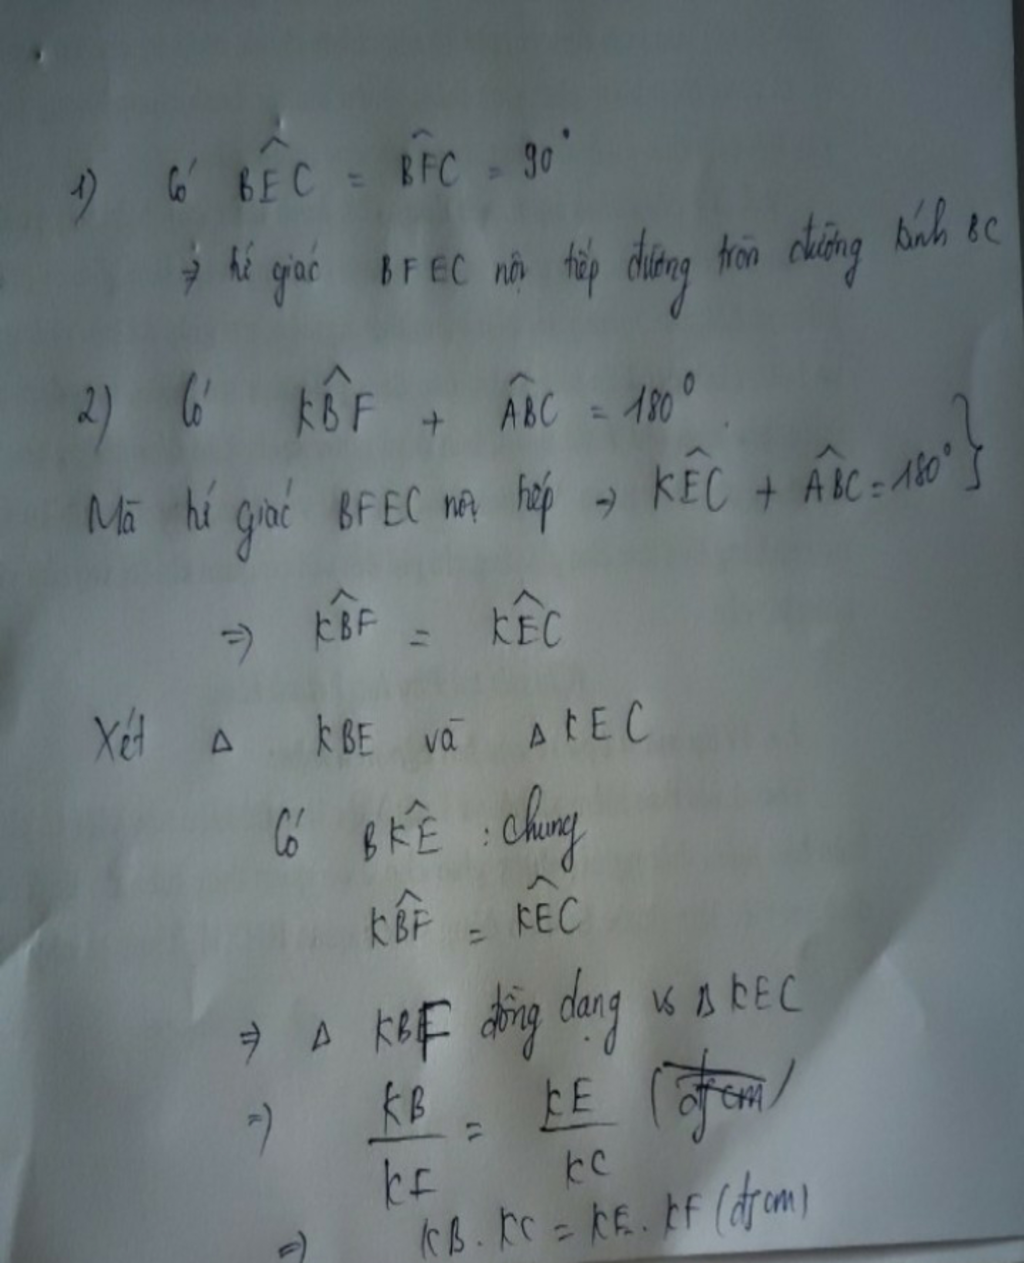 1) Có BÊC = BF̂C = 90°
⇒ tứ giác BFEC nội tiếp đường tròn đường kính BC
2) Có KB̂F + AB̂C = 180°
Mà tứ giác BFEC nội tiếp → KÊC + AB̂C = 180° }
⇒ KB̂F = KÊC
Xét Δ KBE và Δ KEC
Có BK̂E : chung
KB̂F = KÊC
⇒ Δ KBF đồng dạng vs Δ KEC
⇒ KB/KF = KE/KC
⇒ KB . KC = KE . KF (đpcm)